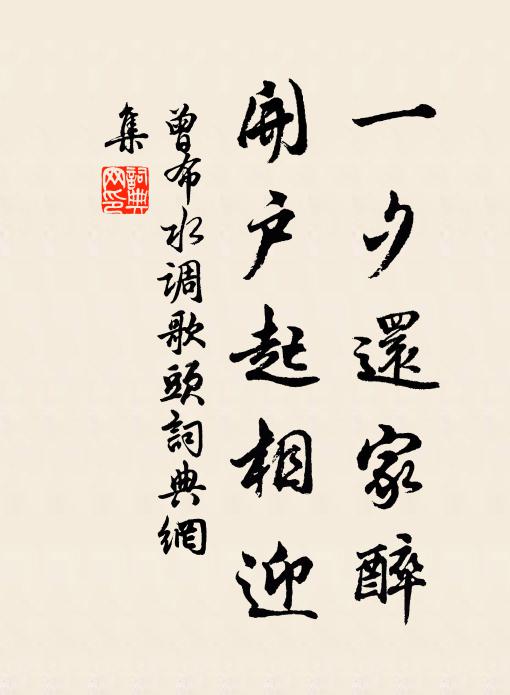 一夕還家醉
開戶起相迎
曾布水调歌頭詞典網
集
詞典
网印